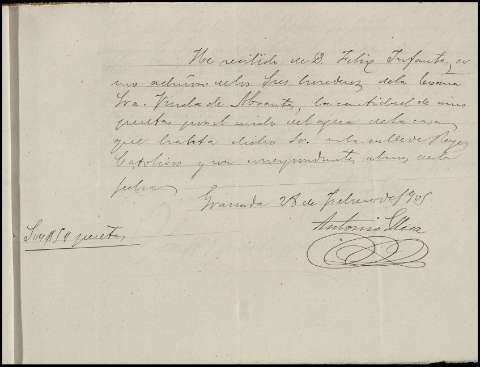 He recibido de D. Felix Infanta, co
mo admor. de los Sres herederos de la Excma
Sra. Viuda de Abrantes, la cantidad de
pesetas por el del agua de la casa
que habita dicho Sr. en la calle de Reyes
Católicos y son correspondientes al mes de la
fecha
Granada 28 de Febrero de 1905
Antonio
Son pesetas